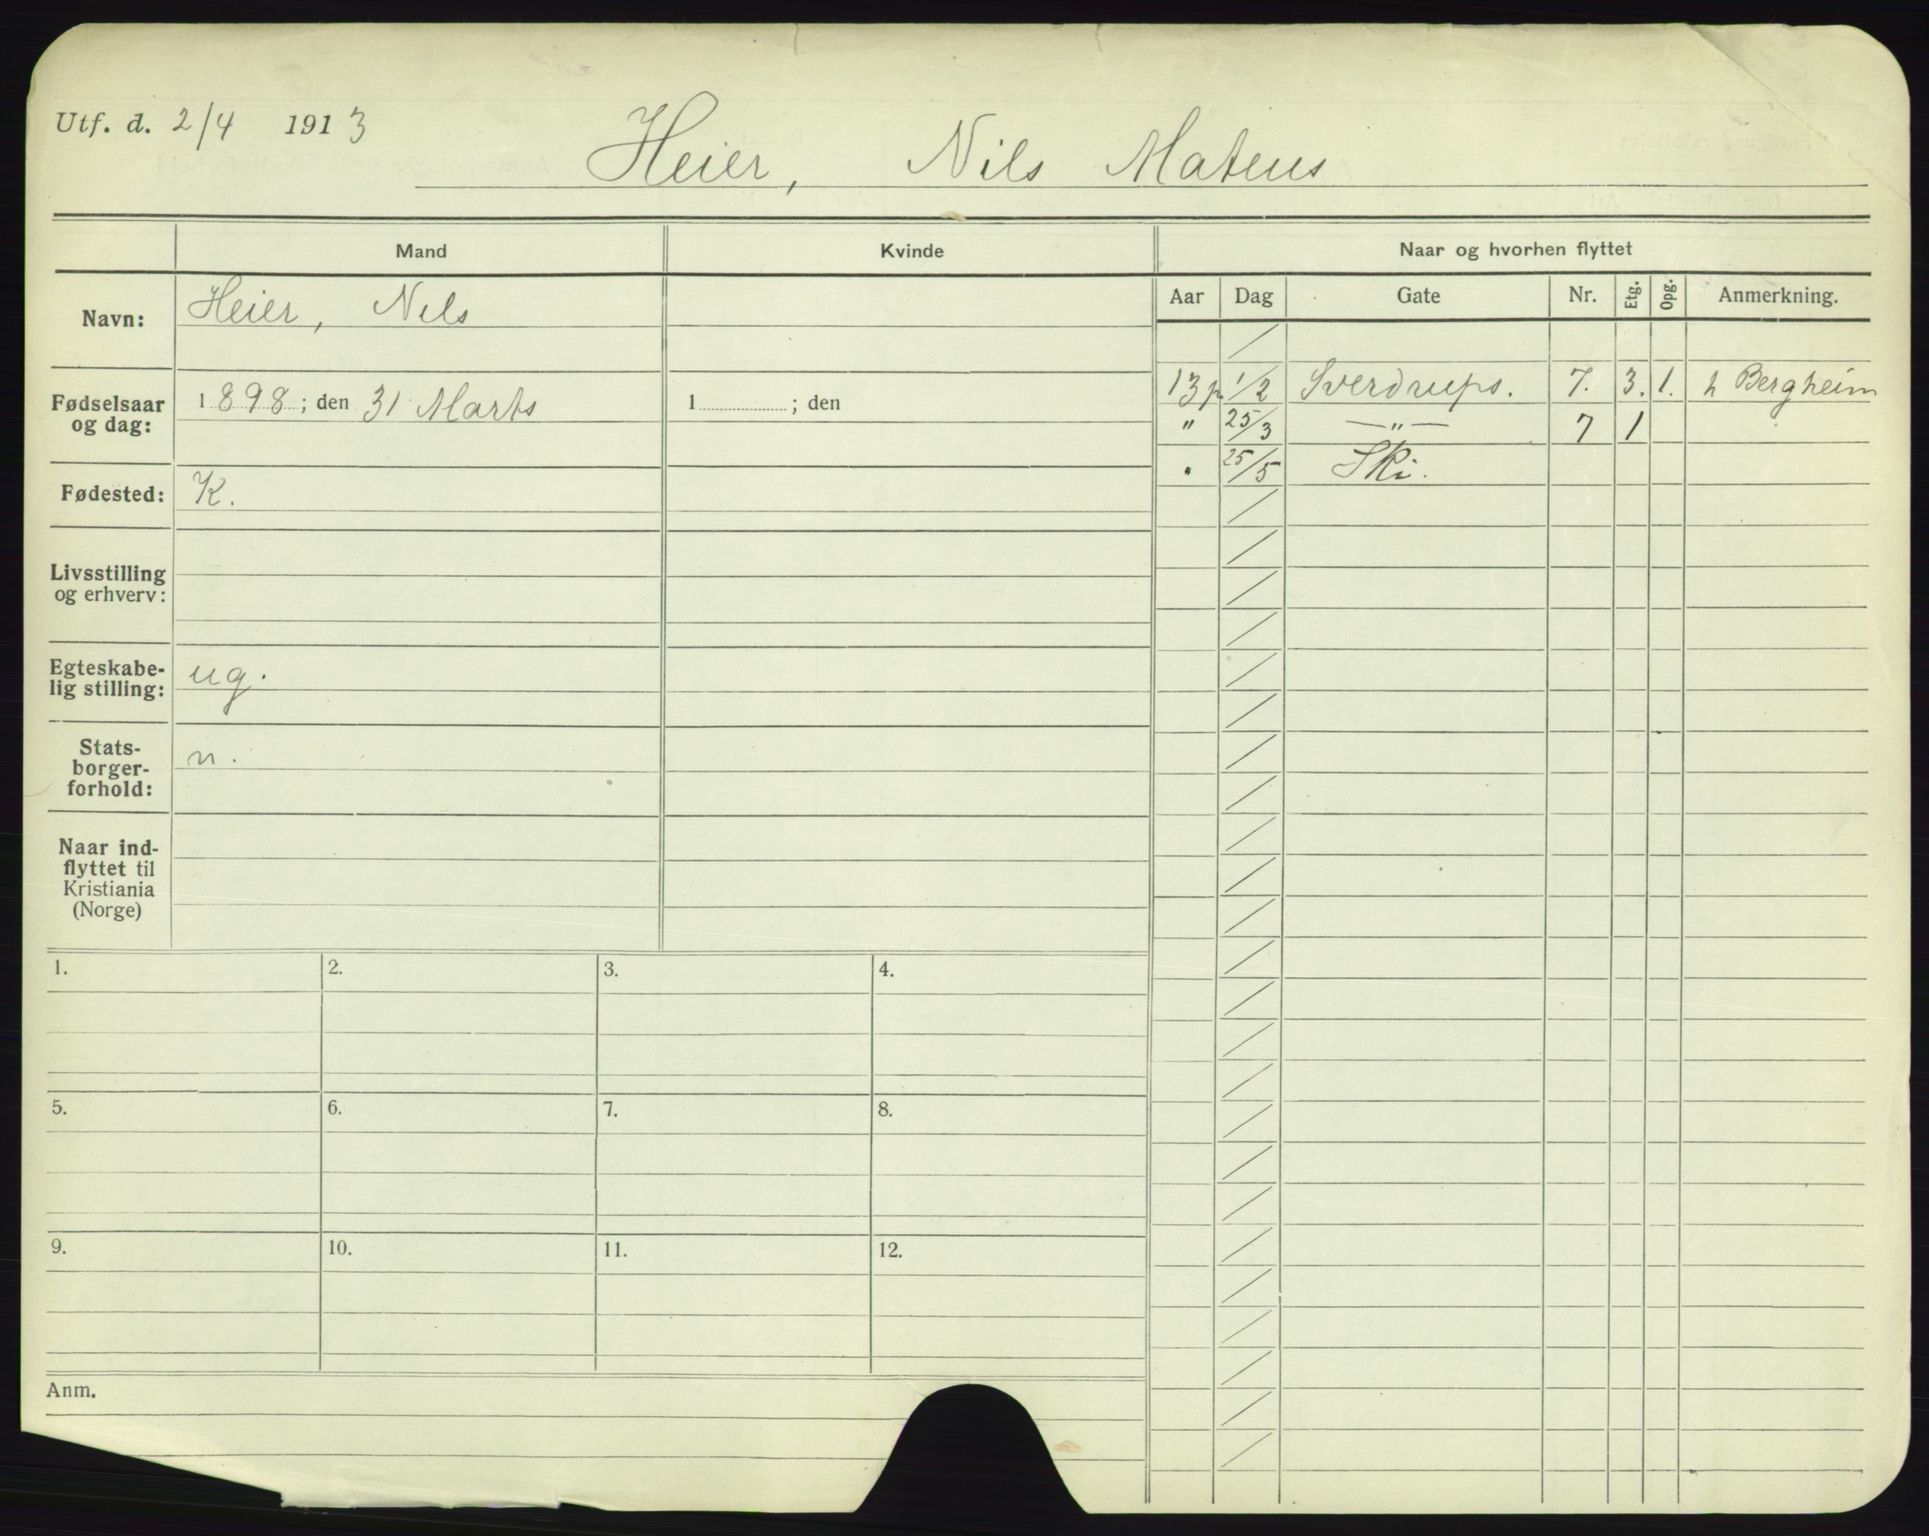 Utf. d. 2/4 1913
Heier, Nils Mateus
Mand
Kvinde
Naar og hvorhen flyttet
Aar Dag Gate Nr. Etg. Opg. Anmerkning.
Navn: Heier, Nils
13 p. 1/2 Sverdrups. 7. 3. 1. h Bergheim
" 25/3 —"— 7 1
" 25/5 Ski.
Fødselsaar og dag: 1898; den 31 Marts
1 ; den
Fødested: K.
Livsstilling
og erhverv:
Egteskabe-
lig stilling: ug.
Stats-
borger-
forhold: n.
Naar ind-
flyttet til
Kristiania
(Norge)
1. 2. 3. 4.
5. 6. 7. 8.
9. 10. 11. 12.
Anm.